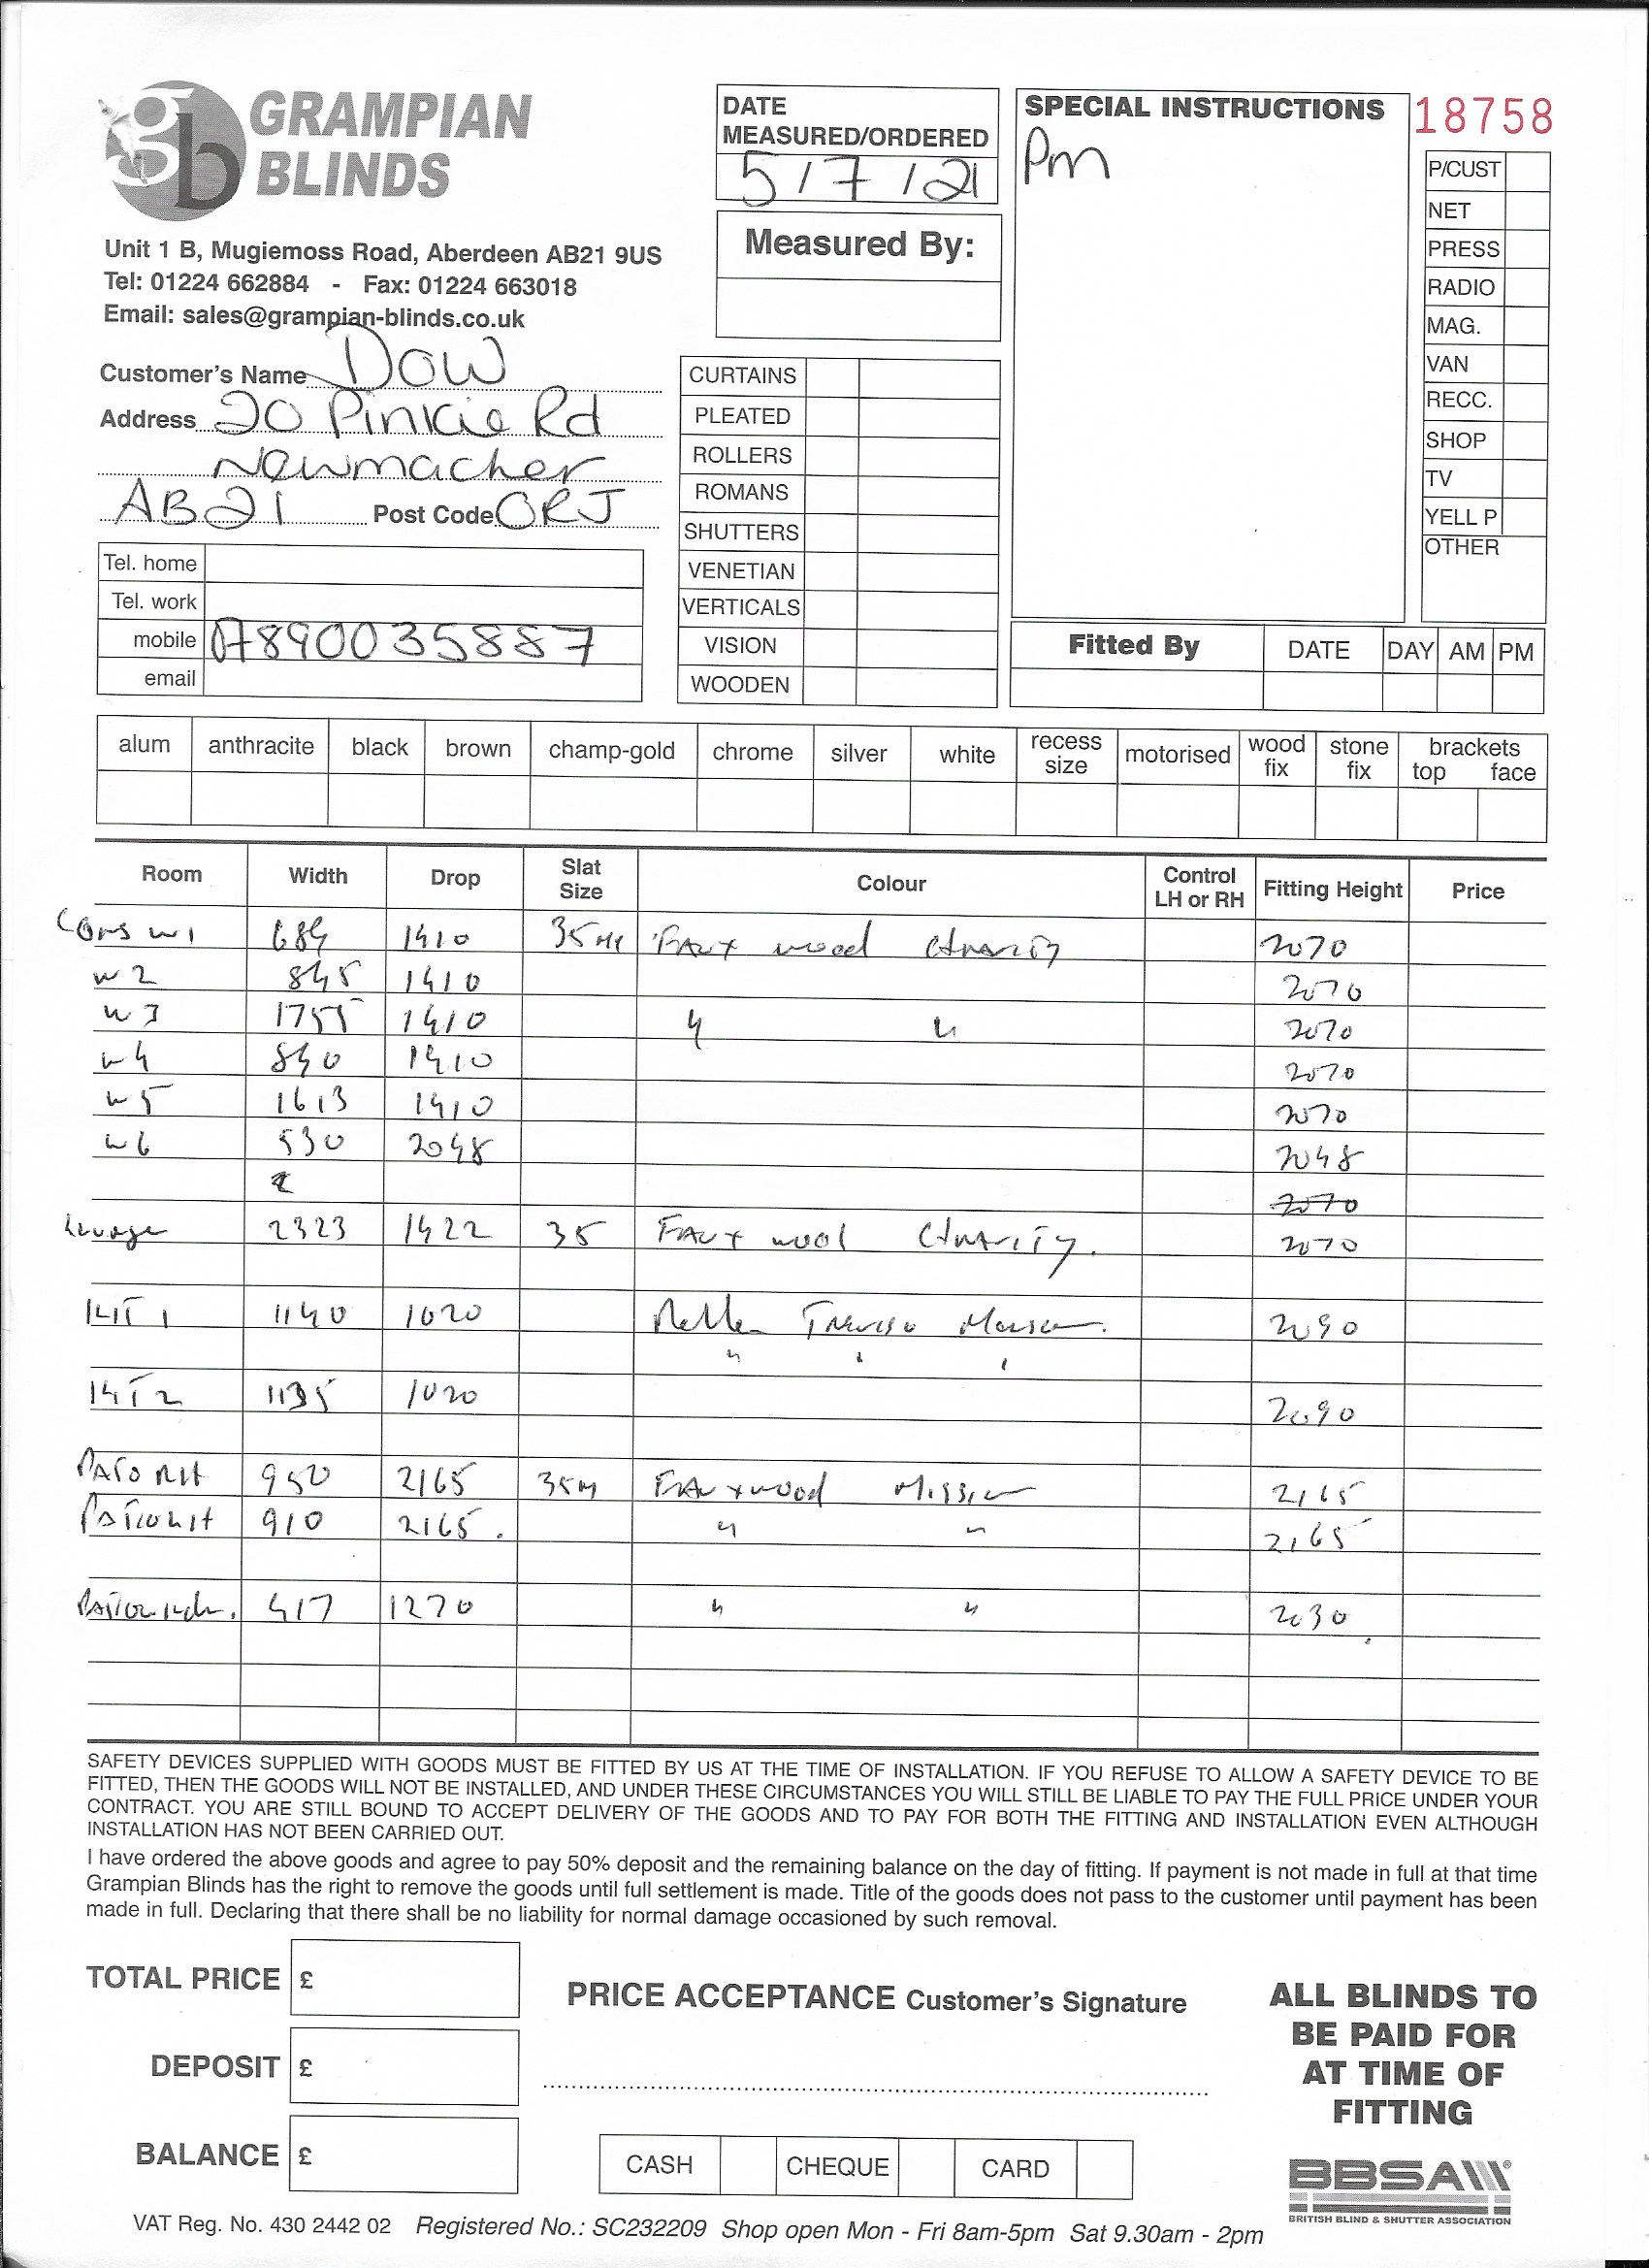 GRAMPIAN BLINDS
Unit 1 B, Mugiemoss Road, Aberdeen AB21 9US
Tel: 01224 662884 - Fax: 01224 663018
Email: sales@grampian-blinds.co.uk
Customer's Name Dow
Address 20 Pinkie Rd
Newmacher
AB21 Post Code 0RJ
Tel. home
Tel. work
mobile 07890035887
email
DATE
MEASURED/ORDERED
5/7/21
Measured By:
CURTAINS
PLEATED
ROLLERS
ROMANS
SHUTTERS
VENETIAN
VERTICALS
VISION
WOODEN
SPECIAL INSTRUCTIONS
Pm
18758
P/CUST
NET
PRESS
RADIO
MAG.
VAN
RECC.
SHOP
TV
YELL P
OTHER
Fitted By DATE DAY AM PM
alum anthracite black brown champ-gold chrome silver white recess size motorised wood fix stone fix brackets top face
Room Width Drop Slat Size Colour Control LH or RH Fitting Height Price
Cons W1 684 1410 35M Faux wood 2070
W2 845 1410 2070
W3 1755 1410 " " 2070
W4 840 1410 2070
W5 1613 1410 2070
W6 530 2048 2048
2070
Lounge 2323 1422 35 Faux wood 2070
KIT 1 1140 1020 Roller 2090
" " "
KIT 2 1135 1020 2090
Patio RH 950 2165 35M Fauxwood Mission 2165
Patio LH 910 2165. " " 2165
417 1270 " " 2030
SAFETY DEVICES SUPPLIED WITH GOODS MUST BE FITTED BY US AT THE TIME OF INSTALLATION. IF YOU REFUSE TO ALLOW A SAFETY DEVICE TO BE
FITTED, THEN THE GOODS WILL NOT BE INSTALLED, AND UNDER THESE CIRCUMSTANCES YOU WILL STILL BE LIABLE TO PAY THE FULL PRICE UNDER YOUR
CONTRACT. YOU ARE STILL BOUND TO ACCEPT DELIVERY OF THE GOODS AND TO PAY FOR BOTH THE FITTING AND INSTALLATION EVEN ALTHOUGH
INSTALLATION HAS NOT BEEN CARRIED OUT.
I have ordered the above goods and agree to pay 50% deposit and the remaining balance on the day of fitting. If payment is not made in full at that time
Grampian Blinds has the right to remove the goods until full settlement is made. Title of the goods does not pass to the customer until payment has been
made in full. Declaring that there shall be no liability for normal damage occasioned by such removal.
TOTAL PRICE £
DEPOSIT £
BALANCE £
PRICE ACCEPTANCE Customer's Signature
CASH CHEQUE CARD
ALL BLINDS TO
BE PAID FOR
AT TIME OF
FITTING
BBSA
BRITISH BLIND & SHUTTER ASSOCIATION
VAT Reg. No. 430 2442 02 Registered No.: SC232209 Shop open Mon - Fri 8am-5pm Sat 9.30am - 2pm